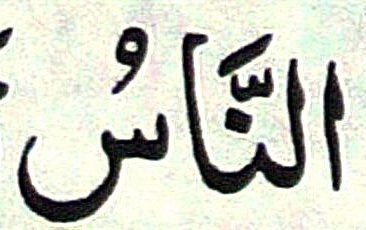 النَّاسُ